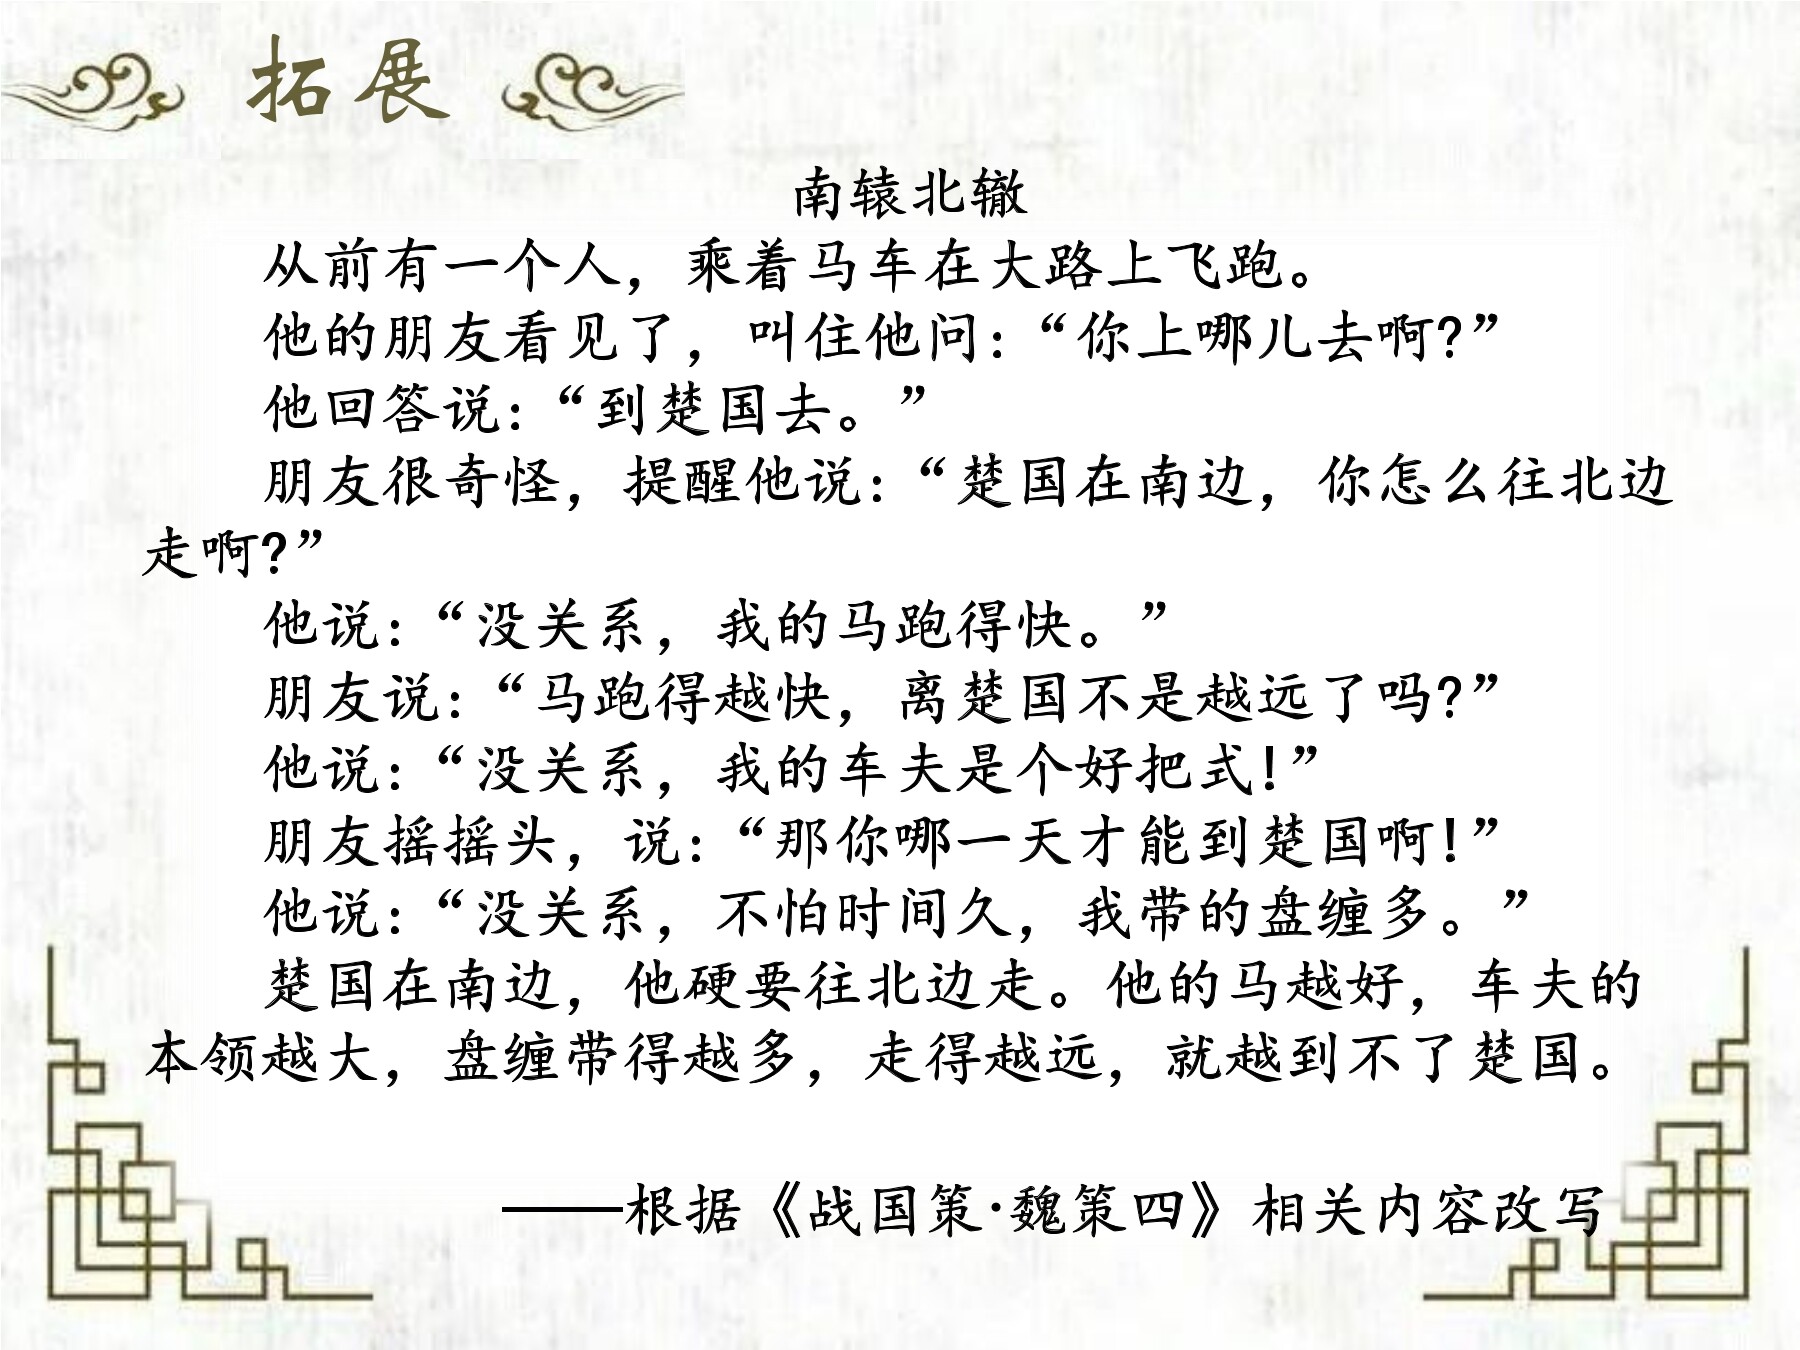 拓展
南辕北辙
从前有一个人，乘着马车在大路上飞跑。
他的朋友看见了，叫住他问：“你上哪儿去啊?”
他回答说：“到楚国去。”
朋友很奇怪，提醒他说：“楚国在南边，你怎么往北边
走啊?”
他说：“没关系，我的马跑得快。”
朋友说：“马跑得越快，离楚国不是越远了吗?”
他说：“没关系，我的车夫是个好把式!”
朋友摇摇头，说：“那你哪一天才能到楚国啊!”
他说：“没关系，不怕时间久，我带的盘缠多。”
楚国在南边，他硬要往北边走。他的马越好，车夫的
本领越大，盘缠带得越多，走得越远，就越到不了楚国。
——根据《战国策·魏策四》相关内容改写